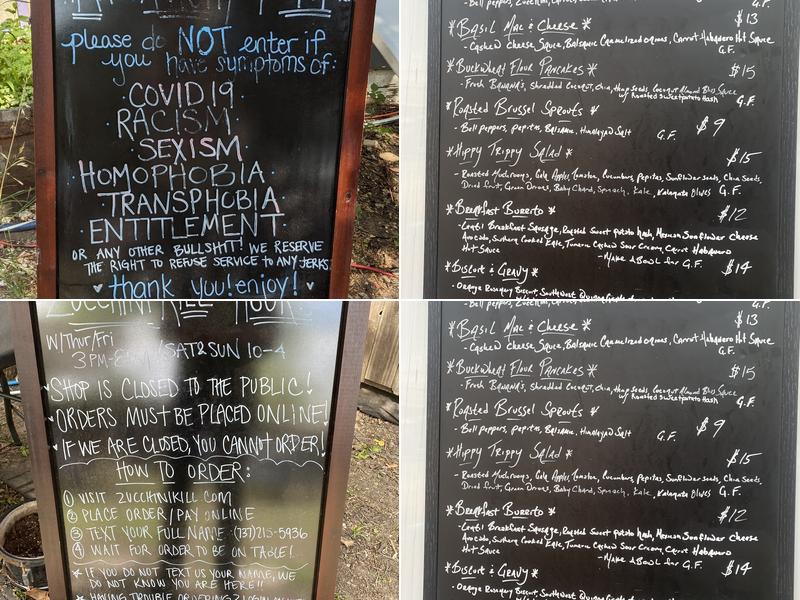 please do NOT enter if
you have symptoms of:
COVID 19
RACISM
SEXISM
HOMOPHOBIA
TRANSPHOBIA
ENTITLEMENT
OR ANY OTHER BULLSHIT! WE RESERVE
THE RIGHT TO REFUSE SERVICE TO ANY JERKS
thank you! enjoy!
- Bell peppers,
$13
*Basil Mac & Cheese*
- Cashew Cheese Sauce, Balsamic Caramelized onions, Carrot Habanero Hot Sauce
G.F.
*Buckwheat Flour Pancakes*
$15
- Fresh Banana's, Shredded Coconut, Chia, Hemp Seeds, Coconut Almond Bliss Sauce
w/ Roasted Sweet potato Hash
G.F.
*Roasted Brussel Sprouts*
$9
- Bell peppers, pepitas, Balsamic, Himalayan Salt
G.F.
*Hippy Trippy Salad*
$15
- Roasted Mushrooms, Gala Apples, Tomatoes, Cucumbers, Pepitas, Sunflower seeds, Chia Seeds,
Dried fruit, Green Onions, Baby Chard, Spinach, Kale, Kalamata Olives G.F.
*Breakfast Burrito*
$12
- Lentil Breakfast Sausage, Roasted Sweet potato hash, Mexican Sunflower Cheese
Avocado, Turmeric Cashew Sour Cream, Carrot Habanero
Hot Sauce
- Make A Bowl for G.F.
*Biscuit & Gravy*
$14
- Orange Rosemary Biscuit, Southwest Quinoa
ZUCCHINI KILL HOURS
W/Thur/Fri
3PM-8PM / SAT & SUN 10-4
SHOP IS CLOSED TO THE PUBLIC!
ORDERS MUST BE PLACED ONLINE!
IF WE ARE CLOSED, YOU CANNOT ORDER!
HOW TO ORDER:
① VISIT ZUCCHINIKILL.COM
② PLACE ORDER/PAY ONLINE
③ TEXT YOUR FULL NAME: (737)215-5936
④ WAIT FOR ORDER TO BE ON TABLE!
* IF YOU DO NOT TEXT US YOUR NAME, WE
DO NOT KNOW YOU ARE HERE!!
* HAVING TROUBLE ORDERING?
- Bell peppers,
G.F.
$13
*Basil Mac & Cheese*
- Cashew Cheese Sauce, Balsamic Caramelized onions, Carrot Habanero Hot Sauce
G.F.
*Buckwheat Flour Pancakes*
$15
- Fresh Banana's, Shredded Coconut, Chia, Hemp Seeds, Coconut Almond Bliss Sauce
w/ Roasted Sweet potato Hash
G.F.
*Roasted Brussel Sprouts*
$9
- Bell peppers, pepitas, Balsamic, Himalayan Salt
G.F.
*Hippy Trippy Salad*
$15
- Roasted Mushrooms, Gala Apples, Tomatoes, Cucumbers, Pepitas, Sunflower seeds, Chia Seeds,
Dried fruit, Green Onions, Baby Chard, Spinach, Kale, Kalamata Olives G.F.
*Breakfast Burrito*
$12
- Lentil Breakfast Sausage, Roasted Sweet potato hash, Mexican Sunflower Cheese
Avocado, Turmeric Cashew Sour Cream, Carrot Habanero
Hot Sauce
- Make A Bowl for G.F.
*Biscuit & Gravy*
$14
- Orange Rosemary Biscuit, Southwest Quinoa